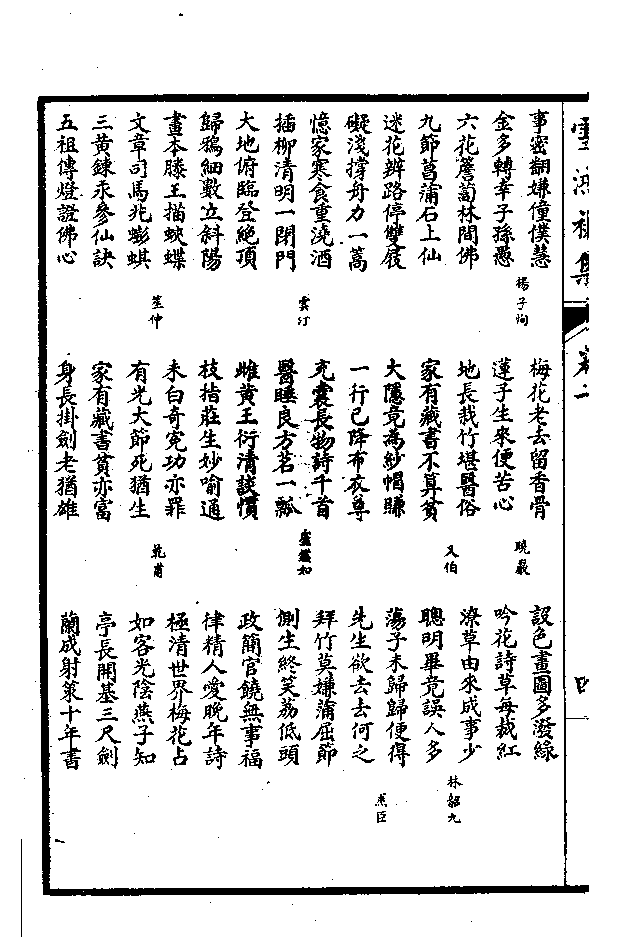 雪鴻初集
卷一
四
事密翻嫌僮僕慧
金多轉幸子孫愚
楊子恂
六花薝蔔林間佛
九節菖蒲石上仙
迷花辨路停雙屐
礙淺撐舟力一篙
憶家寒食重澆酒
插柳清明一閉門
雲汀
大地俯臨登絕頂
歸鴉細數立斜陽
畫本滕王描蛺蝶
文章司馬兆蟛蜞
笙仲
三黃鍊汞參仙訣
五祖傳燈證佛心
梅花老去留香骨
蓮子生來便苦心
曉巖
地長栽竹堪醫俗
家有藏書不算貧
又伯
大隱竟為紗帽賺
一行已降布衣尊
充囊長物詩千首
醫睡良方茗一瓢
盧鑑如
雌黃王衍清談慣
枝拮莊生妙喻通
未白奇冤功亦罪
有光大節死猶生
乾甫
家有藏書貧亦富
身長掛劍老猶雄
設色畫圖多潑綠
吟花詩草每裁紅
潦草由來成事少
聰明畢竟誤人多
林韶九
蕩子未歸歸便得
先生欲去去何之
燾臣
拜竹莫嫌蒲屈節
側生終笑荔低頭
政簡官饒無事福
律精人愛晚年詩
極清世界梅花占
如客光陰燕子知
亭長開基三尺劍
蘭成射策十年書